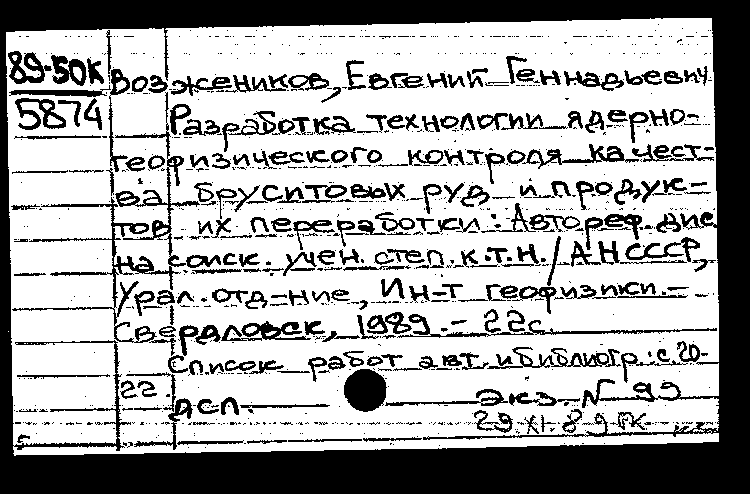 89-50К
5874
Возжеников, Евгений Геннадьевич
Разработка технологии ядерно-
геофизического контроля качест-
ва бруситовых руд и продук-
тов их переработки: Автореф. дис.
на соиск. учен. степ. к.т.н. / АН СССР,
Урал. отд-ние, Ин-т геофизики.-
Свердловск, 1989. - 22с.
Список работ авт. и библиогр.: с.20-
22.
дсп.
экз. N 99
29.XI.89